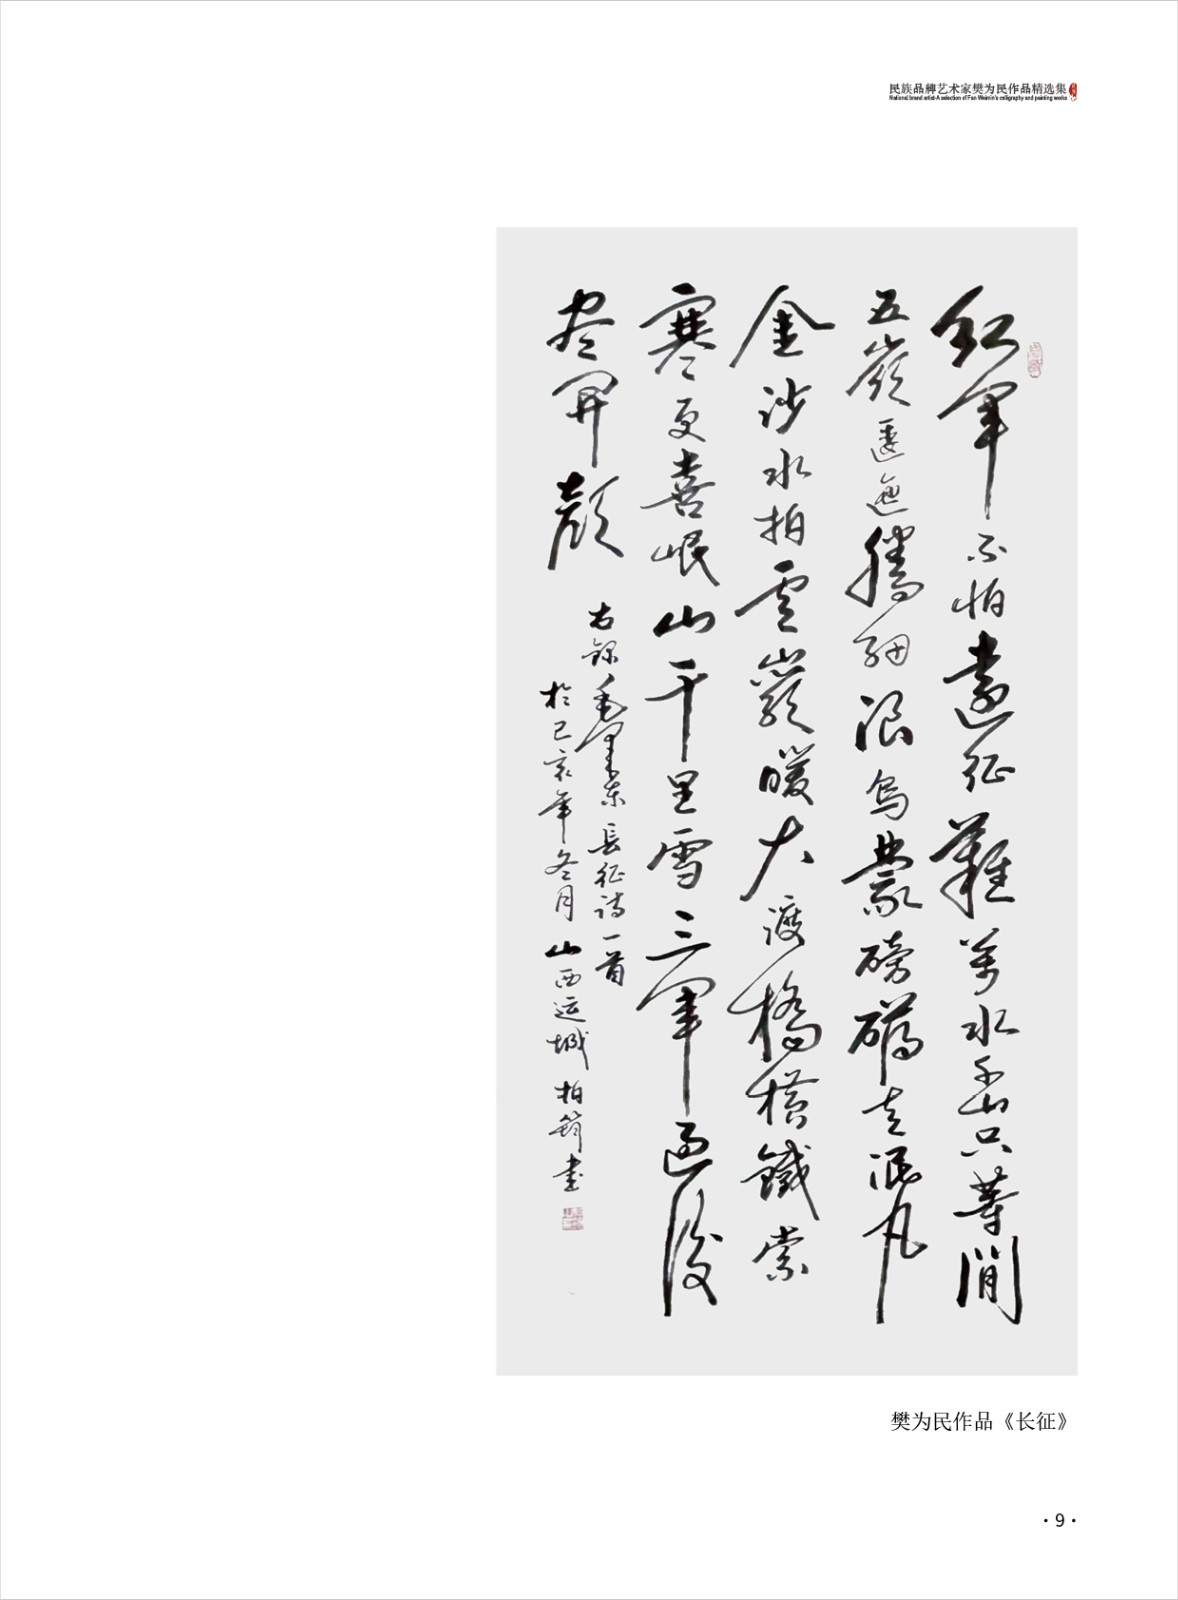 民族品牌艺术家樊为民作品精选集
National brand artist-A selection of Fan Weimin's calligraphy and painting works
紅軍不怕遠征難萬水千山只等閒
五嶺逶迤騰細浪烏蒙磅礴走泥丸
金沙水拍雲巖暖大渡橋橫鐵索
寒更喜岷山千里雪三軍過後
盡開顏
右錄毛澤東長征詩一首
於己亥年冬月山西运城柏書
樊为民作品《长征》
·9·